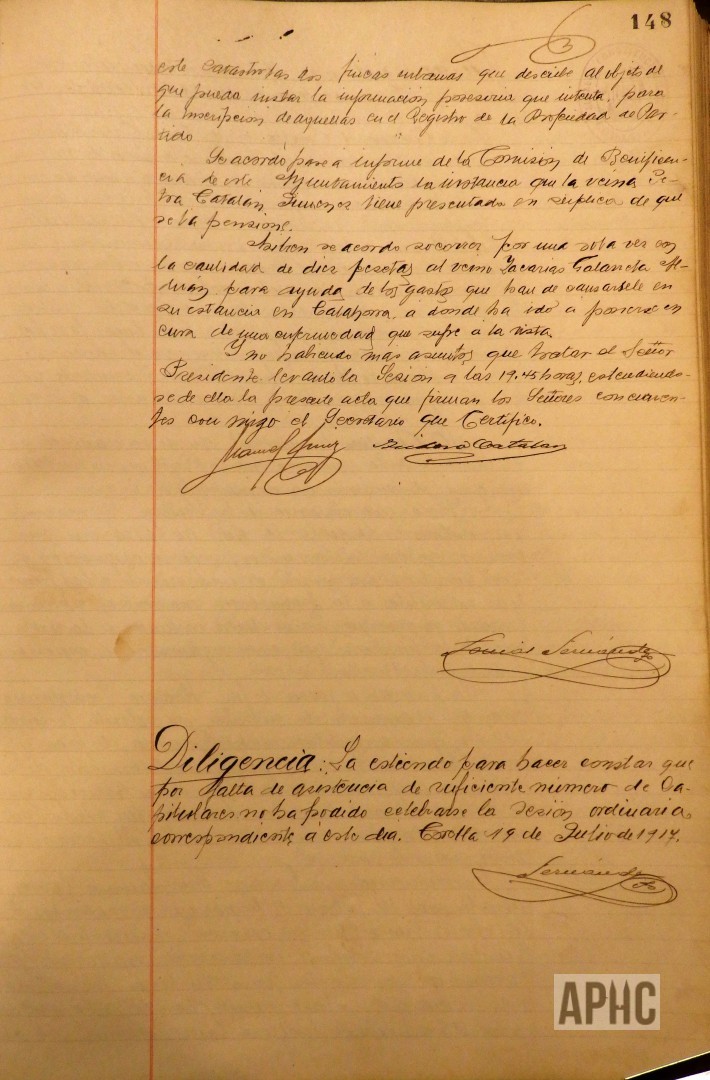 148
este catastro las dos fincas urbanas que describe al objeto de
que pueda instar la informacion posesoria que intenta para
la inscripcion de aquellas en el Registro de la Propiedad de Par-
tido
Se acordó pase a informe de la Comisión de Beneficen-
cia de este Ayuntamiento la instancia que la vecina Pe-
tra Catalán Jimenez tiene presentada en suplica de que
se la pensione.
se acordo socorrer por una sola vez con
la cantidad de diez pesetas al vecino Zacarias Calancha
para ayuda de los gastos que han de causarsele en
su estancia en Calahorra a donde ha ido a ponerse en
cura de una enfermedad que sufre a la vista.
Y no habiendo mas asuntos que tratar el Señor
Presidente levantó la Sesión a las 19.45 horas, extendiendo-
se de ella la presente acta que firman los Señores concurren-
tes con migo el Secretario que Certifico.
Manuel Isidoro Catalan
Fernández
Diligencia: La extiendo para hacer constar que
por falta de asistencia de suficiente número de Ca-
pitulares no ha podido celebrarse la sesión ordinaria
correspondiente á este dia. Corella 19 de Julio de 1917.
Fernández
APHC